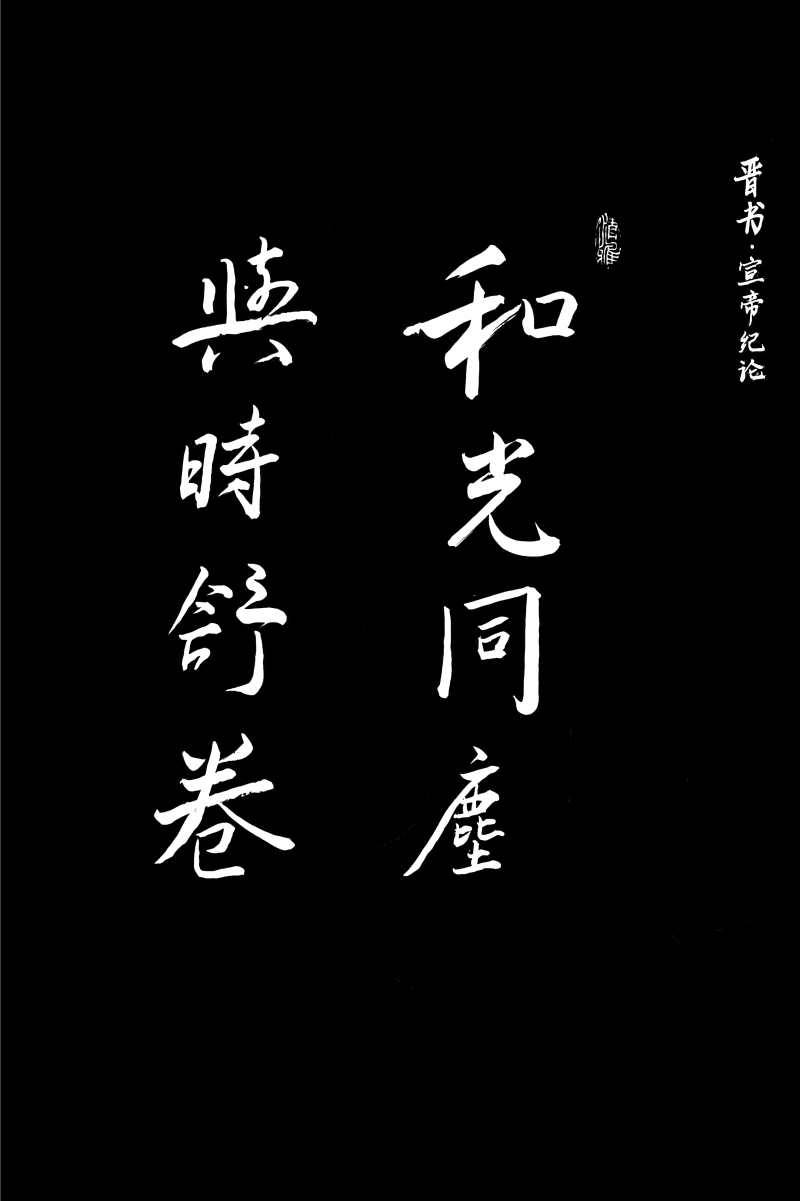 晋书·宣帝纪论
和光同塵
與時舒卷